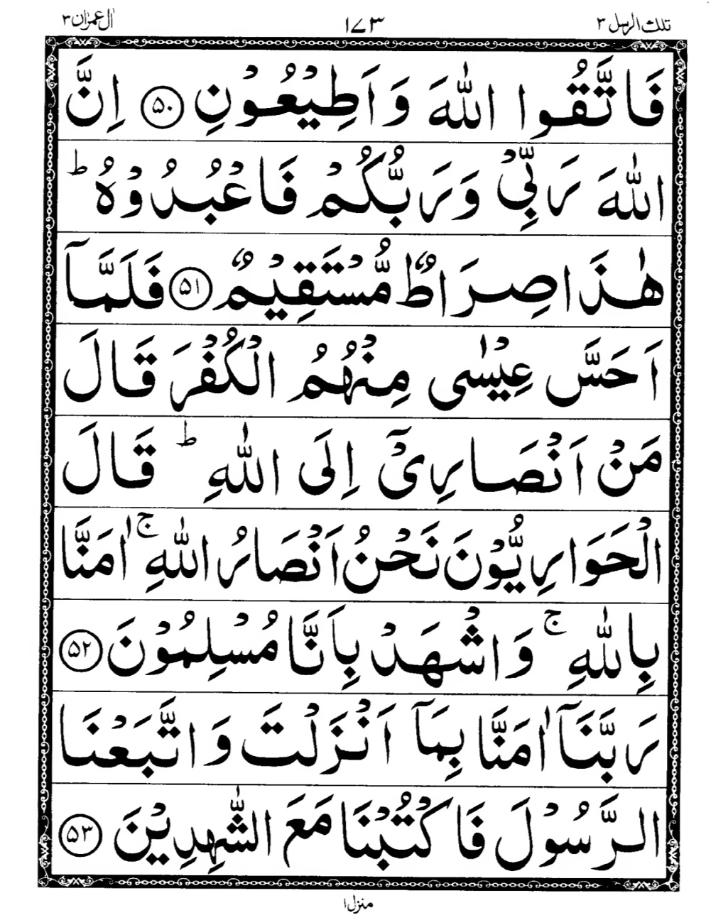 تلك الرسل ۳
١٧٣
اٰل عمرٰن ۳
فَاتَّقُوا اللّٰهَ وَاَطِيْعُوْنِ ۝٥٠ اِنَّ
اللّٰهَ رَبِّيْ وَرَبُّكُمْ فَاعْبُدُوْهُ ؕ
هٰذَا صِرَاطٌ مُّسْتَقِيْمٌ ۝٥١ فَلَمَّاۤ
اَحَسَّ عِيْسٰى مِنْهُمُ الْكُفْرَ قَالَ
مَنْ اَنْصَارِيْۤ اِلَى اللّٰهِ ؕ قَالَ
الْحَوَارِيُّوْنَ نَحْنُ اَنْصَارُ اللّٰهِ ۚ اٰمَنَّا
بِاللّٰهِ ۚ وَاشْهَدْ بِاَنَّا مُسْلِمُوْنَ ۝٥٢
رَبَّنَاۤ اٰمَنَّا بِمَاۤ اَنْزَلْتَ وَاتَّبَعْنَا
الرَّسُوْلَ فَاكْتُبْنَا مَعَ الشّٰهِدِيْنَ ۝٥٣
منزل ۱